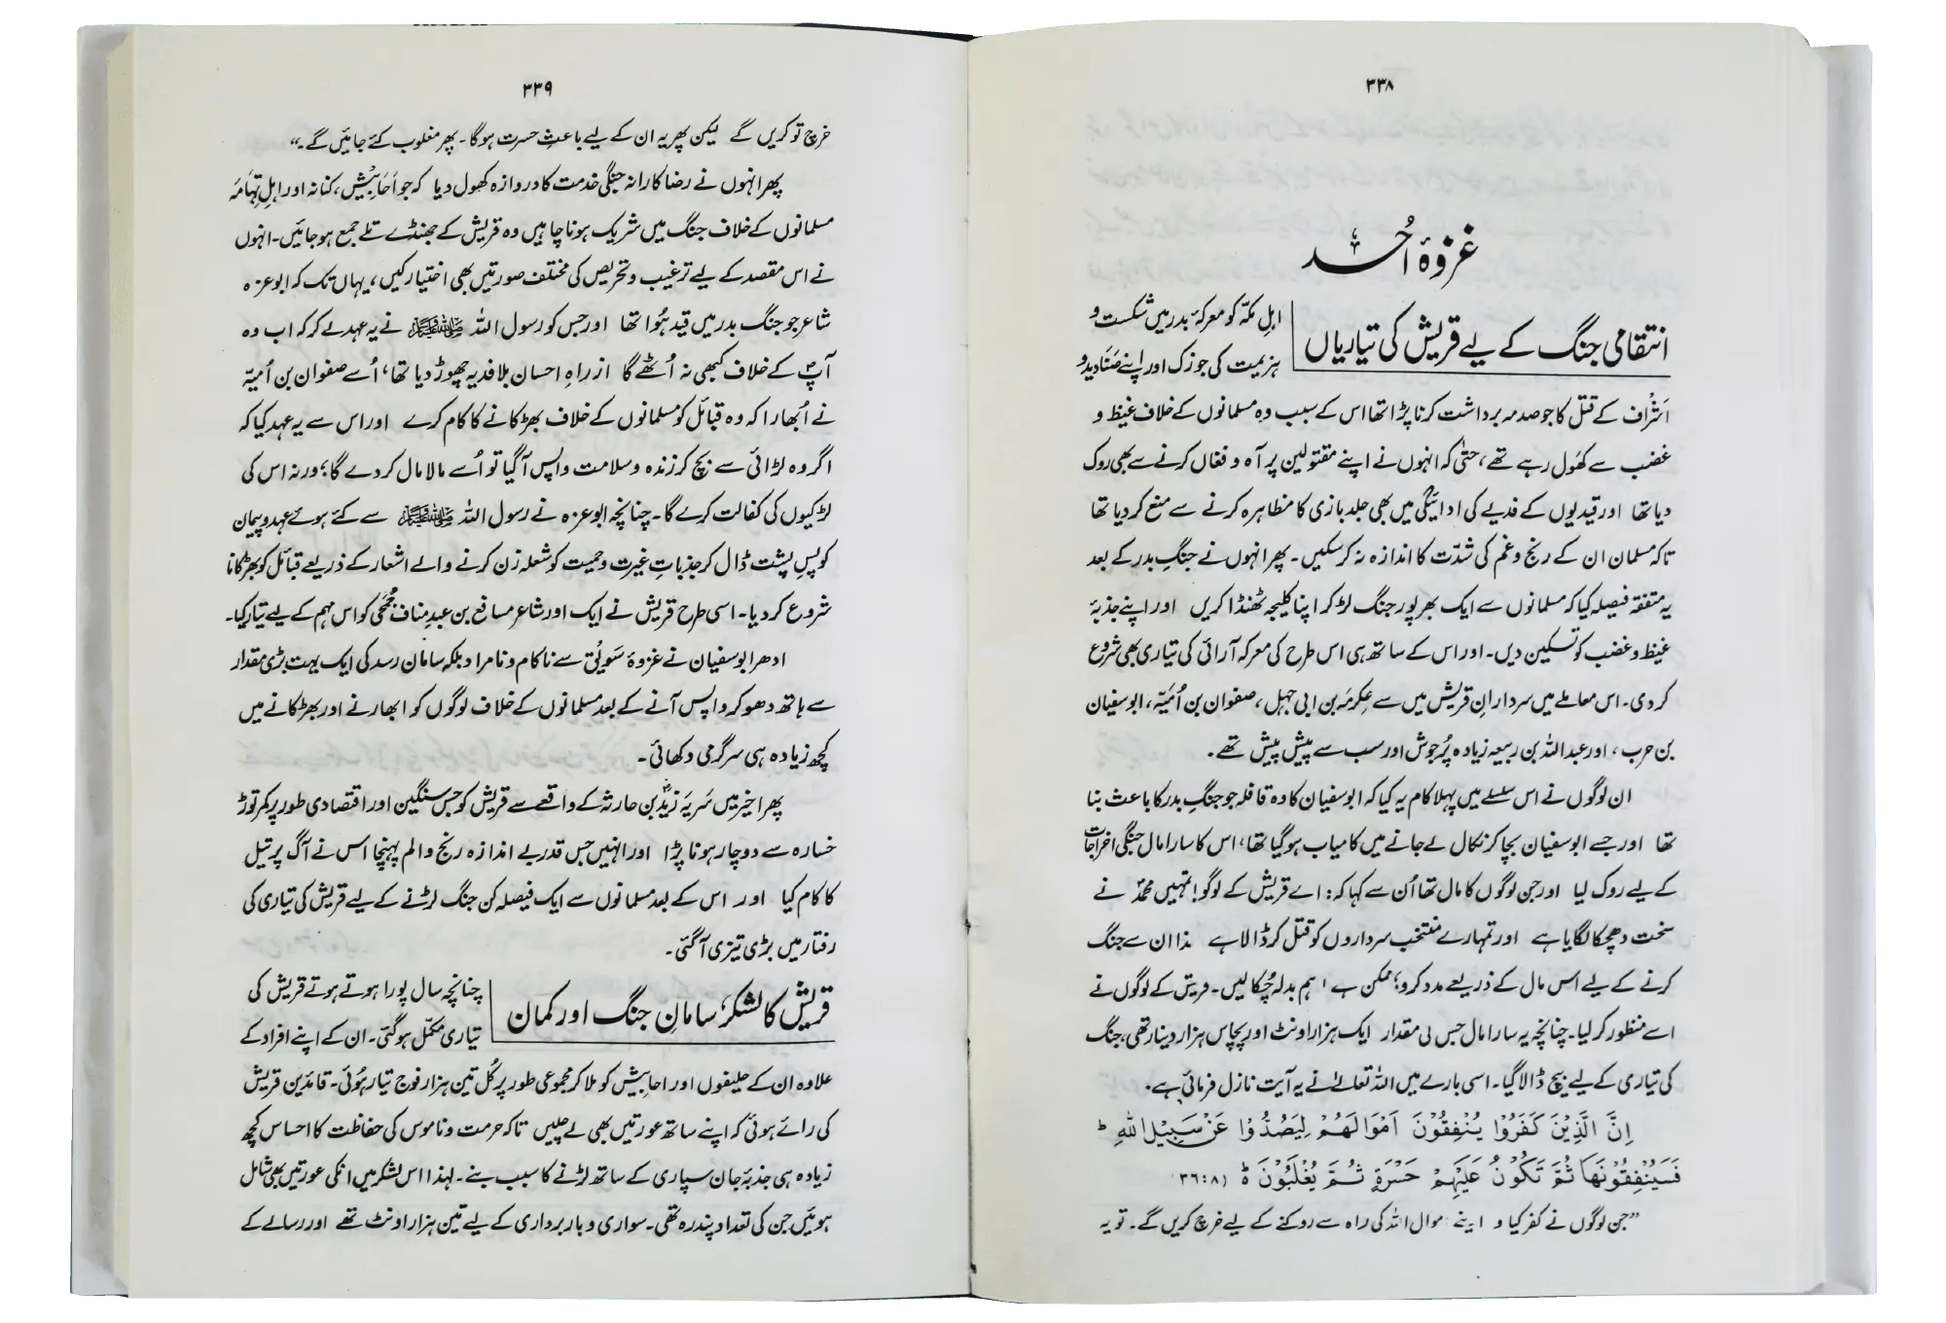 ۳۳۸
غزوۂ اُحد
انتقامی جنگ کے لیے قریش کی تیاریاں
اہلِ مکّہ کو معرکۂ بدر میں شکست و
ہزیمت کی جو زک اور اپنے صَنَادِید و
اَشراف کے قتل کا جو صدمہ برداشت کرنا پڑا تھا اس کے سبب وہ مسلمانوں کے خلاف غیظ و
غضب سے کھَول رہے تھے، حتّٰی کہ انہوں نے اپنے مقتولین پر آہ و فغاں کرنے سے بھی روک
دیا تھا اور قیدیوں کے فدیے کی ادائیگی میں بھی جلد بازی کا مظاہرہ کرنے سے منع کر دیا تھا
تاکہ مسلمان ان کے رنج و غم کی شدّت کا اندازہ نہ کر سکیں۔ پھر انہوں نے جنگِ بدر کے بعد
یہ متفقہ فیصلہ کیا کہ مسلمانوں سے ایک بھرپور جنگ لڑ کر اپنا کلیجہ ٹھنڈا کریں اور اپنے جذبۂ
غیظ و غضب کو تسکین دیں۔ اور اس کے ساتھ ہی اس طرح کی معرکہ آرائی کی تیاری بھی شروع
کر دی۔ اس معاملے میں سردارانِ قریش میں سے عِکرمَہ بن ابی جہل، صفوان بن اُمَیّہ، ابوسفیان
بن حرب، اور عبداللہ بن ربیعہ زیادہ پُرجوش اور سب سے پیش پیش تھے۔
ان لوگوں نے اس سلسلے میں پہلا کام یہ کیا کہ ابوسفیان کا وہ قافلہ جو جنگِ بدر کا باعث بنا
تھا اور جسے ابوسفیان بچا کر نکال لے جانے میں کامیاب ہو گیا تھا، اس کا سارا مال جنگی اخراجات
کے لیے روک لیا اور جن لوگوں کا مال تھا اُن سے کہا کہ: اے قریش کے لوگو! تمہیں محمدؐ نے
سخت دھچکا لگایا ہے اور تمہارے منتخب سرداروں کو قتل کر ڈالا ہے ہذا ان سے جنگ
کرنے کے لیے اس مال کے ذریعے مدد کرو؛ ممکن ہے ہم بدلہ چُکا لیں۔ قریش کے لوگوں نے
اسے منظور کر لیا۔ چنانچہ یہ سارا مال جس کی مقدار ایک ہزار اونٹ اور پچاس ہزار دینار تھی، جنگ
کی تیاری کے لیے بیچ ڈالا گیا۔ اسی بارے میں اللہ تعالےٰ نے یہ آیت نازل فرمائی ہے۔
اِنَّ الَّذِيْنَ كَفَرُوْا يُنْفِقُوْنَ اَمْوَالَهُمْ لِيَصُدُّوْا عَنْ سَبِيْلِ اللّٰهِ ط
فَسَيُنْفِقُوْنَهَا ثُمَّ تَكُوْنُ عَلَيْهِمْ حَسْرَةً ثُمَّ يُغْلَبُوْنَ ۀ (۳۶:۸)
”جن لوگوں نے کفر کیا وہ اپنے اموال اللہ کی راہ سے روکنے کے لیے خرچ کریں گے۔ تو یہ
۳۳۹
خرچ تو کریں گے لیکن پھر یہ ان کے لیے باعثِ حسرت ہو گا۔ پھر مغلوب کئے جائیں گے۔“
پھر انہوں نے رضا کارانہ جنگی خدمت کا دروازہ کھول دیا کہ جو اَحَابِیْش، کنانہ اور اہلِ تِہَامَہ
مسلمانوں کے خلاف جنگ میں شریک ہونا چاہیں وہ قریش کے جھنڈے تلے جمع ہو جائیں۔ انہوں
نے اس مقصد کے لیے ترغیب و تحریص کی مختلف صورتیں بھی اختیار کیں، یہاں تک کہ ابوعزہ
شاعر جو جنگ بدر میں قید ہُوا تھا اور جس کو رسول اللہ ﷺ نے یہ عہد لے کر کہ اب وہ
آپؐ کے خلاف کبھی نہ اُٹھے گا از راہِ احسان بلا فدیہ چھوڑ دیا تھا، اُسے صفوان بن اُمیّہ
نے اُبھارا کہ وہ قبائل کو مسلمانوں کے خلاف بھڑکانے کا کام کرے اور اس سے یہ عہد کیا کہ
اگر وہ لڑائی سے بچ کر زندہ و سلامت واپس آ گیا تو اُسے مالا مال کر دے گا؛ ورنہ اس کی
لڑکیوں کی کفالت کرے گا۔ چنانچہ ابوعزہ نے رسول اللہ ﷺ سے کئے ہوئے عہد و پیمان
کو پسِ پشت ڈال کر جذباتِ غیرت و حمیت کو شعلہ زن کرنے والے اشعار کے ذریعے قبائل کو بھڑکانا
شروع کر دیا۔ اسی طرح قریش نے ایک اور شاعر مسافع بن عبد مناف جُمَحِی کو اس مہم کے لیے تیار کیا۔
ادھر ابوسفیان نے غزوۂ سَوِیْق سے ناکام و نامراد بلکہ سامان رسد کی ایک بہت بڑی مقدار
سے ہاتھ دھو کر واپس آنے کے بعد مسلمانوں کے خلاف لوگوں کو ابھارنے اور بھڑکانے میں
کچھ زیادہ ہی سرگرمی دکھائی۔
پھر اخیر میں سَرِیّۂ زیدؓ بن حارثہ کے واقعے سے قریش کو جس سنگین اور اقتصادی طور پر کمر توڑ
خسارہ سے دوچار ہونا پڑا اور انہیں جس قدر بے اندازہ رنج و الم پہنچا اس نے آگ پر تیل
کا کام کیا اور اس کے بعد مسلمانوں سے ایک فیصلہ کن جنگ لڑنے کے لیے قریش کی تیاری کی
رفتار میں بڑی تیزی آ گئی۔
قریش کا لشکر، سامانِ جنگ اور کمان
چنانچہ سال پورا ہوتے ہوتے قریش کی
تیاری مکمّل ہو گئی۔ ان کے اپنے افراد کے
علاوہ ان کے حلیفوں اور احابیش کو ملا کر مجموعی طور پر کُل تین ہزار فوج تیار ہُوئی۔ قائدین قریش
کی رائے ہوئی کہ اپنے ساتھ عورتیں بھی لے چلیں تاکہ حرمت و ناموس کی حفاظت کا احساس کچھ
زیادہ ہی جذبۂ جان سپاری کے ساتھ لڑنے کا سبب بنے۔ لہذا اس لشکر میں انکی عورتیں بھی شامل
ہوئیں جن کی تعداد پندرہ تھی۔ سواری و بار برداری کے لیے تین ہزار اونٹ تھے اور رسالے کے